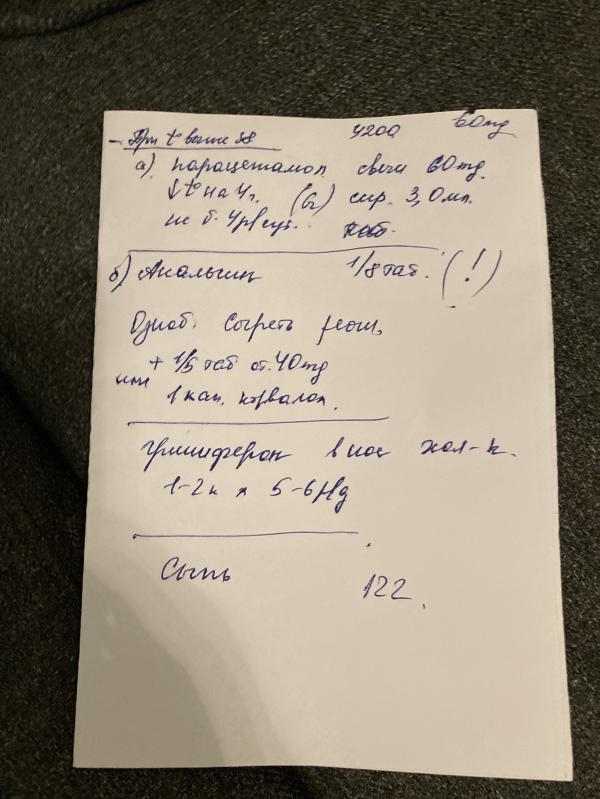 - При t° выше 38 4200 60mg
а) парацетамол свечи 60mg.
↓t° на 4ч. (6г) сир. 3,0мл.
не б. 4р/сут.
б) Анальгин 1/8 таб. (!)
Озноб. Согреть
+ 1/5 таб от. 40mg
или 1 кап. корвалол.
Гриппферон в нос хол-к.
1-2к x 5-6р/д
Сыпь 122.